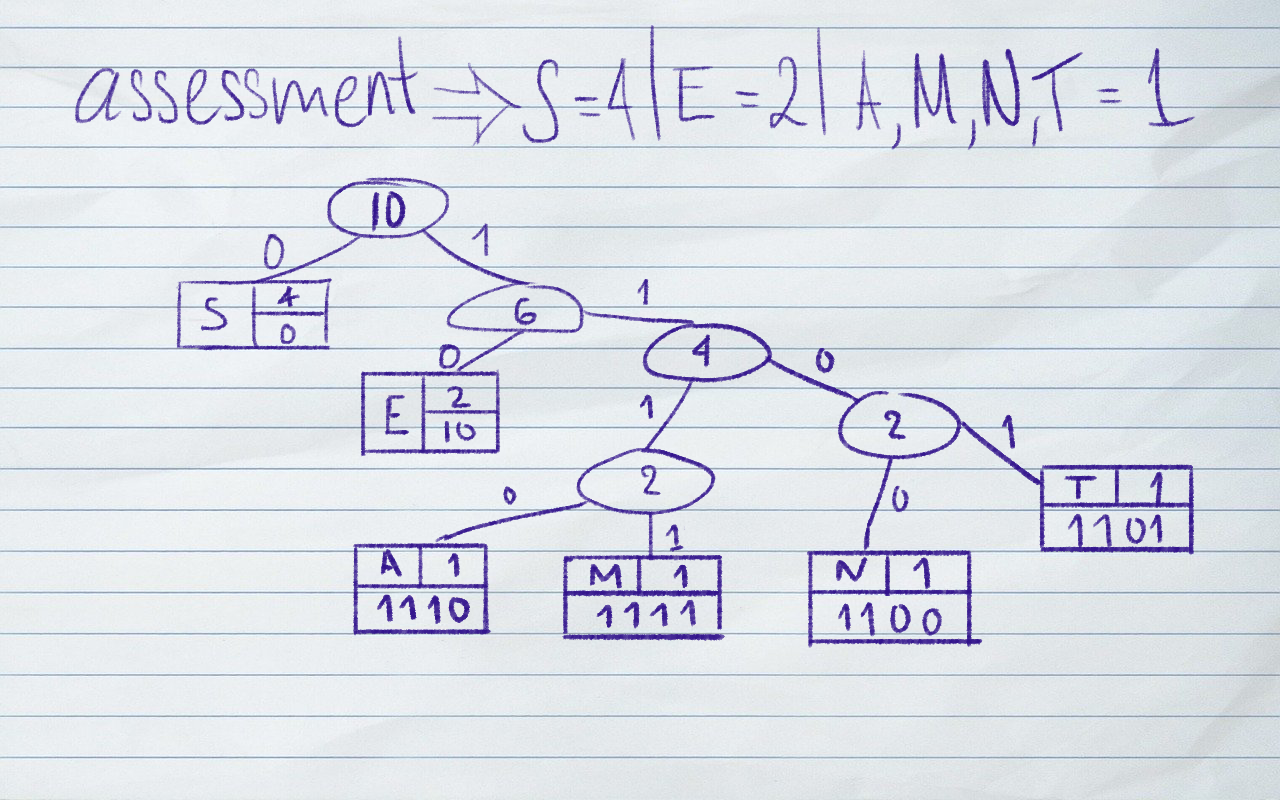 assessment ⇒ S=4 | E=2 | A,M,N,T=1
10
0 1
S 4 0
6
1
0
E 2 10
4
1 0
2
2
0 1
0 1
A 1 1110
M 1 1111
N 1 1100
T 1 1101